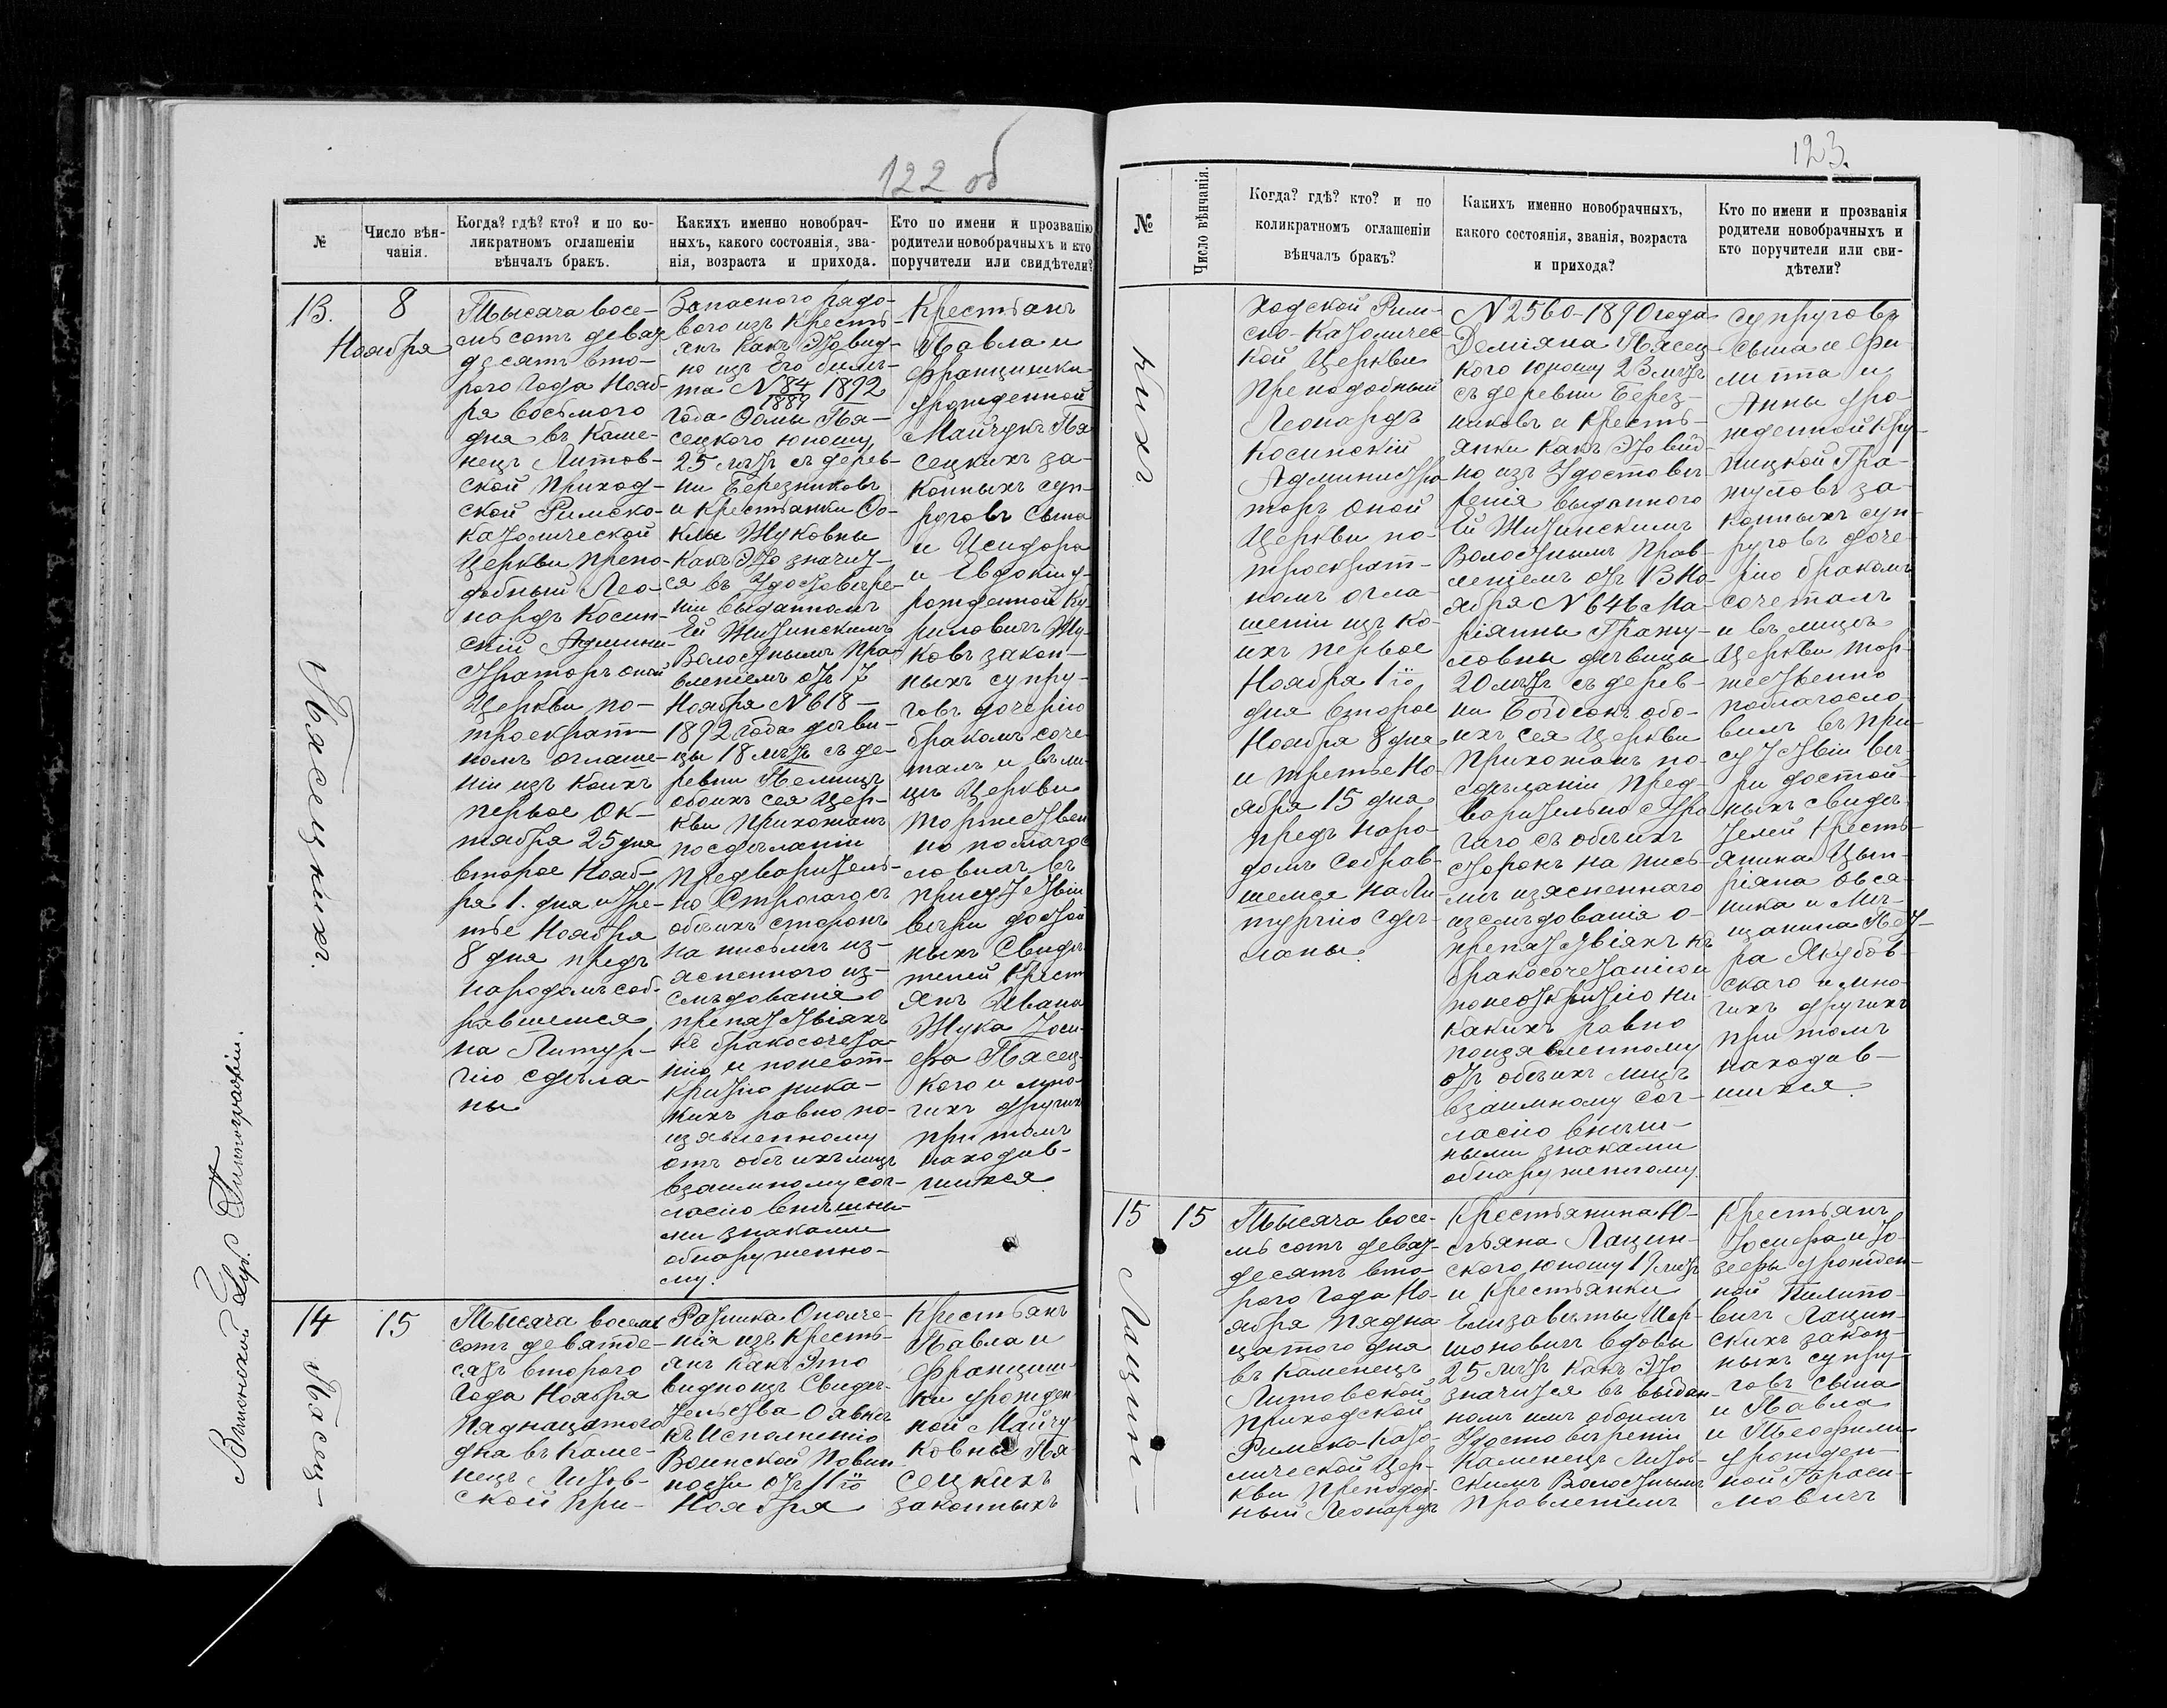 122 об
№
Число вѣн-
чанія.
Когда? гдѣ? кто? и по ко-
ликратномъ оглашеніи
вѣнчалъ бракъ.
Какихъ именно новобрач-
ныхъ, какого состоянія, зва-
нія, возраста и прихода.
Кто по имени и прозванію
родители новобрачныхъ и кто
поручители или свидѣтели?
13.
8
Ноября
Пясецкихъ.
Тысяча восе-
мь сотъ девят
десятъ вто-
рого Года Нояб-
ря восьмого
дня въ Каме-
нецъ Литов-
ской Приход-
ской Римско-
католической
Церкви Препо-
добный Лео-
нардъ Косин-
скій Админи-
страторъ оной
Церкви по-
троекрат-
номъ оглаше-
ніи изъ коихъ
первое Ок-
тября 25 дня
второе Нояб-
ря 1. дня и тре-
тье Ноября
8 дня предъ
народомъ соб-
равшемся
на Литур-
гію сдѣла-
ны
Запасного рядо-
вого изъ Кресть-
янъ какъ это вид-
но изъ его биле-
та N 84/1889 1892
Года Фомы Пя-
сецкого юношу
25 лѣтъ съ дерев-
ни Березниковъ
и Крестьянки Фе-
клы Жуковны
какъ это значит-
ся въ Удостовѣре-
ніи выданномъ
Ей Жизинскимъ
Волостнымъ Пра-
вленіемъ отъ 17
Ноября N 618 –
1892 года дѣви-
цы 18 лѣтъ съ де-
ревни Пелищъ
обоихъ сея Цер-
кви Прихожанъ
посдѣланіи
Предваритель-
но Строгаго съ
обѣихъ сторонъ
на письмѣ из-
ясненного из-
слѣдованія о
препятствіяхъ
къ бракосочета-
нію и понеот-
крытію ника-
кихъ равно по-
изявленному
отъ обѣихъ лицъ
взаимному сог-
ласію внѣшни-
ми знаками
обнаруженно-
му.
Крестьянъ
Павла и
Францишки
урожденной
Майчукъ Пя
сецкихъ за-
конныхъ суп-
руговъ сына
и Исидора
и Евдокіи у-
рожденной Ку-
риловичъ Жу-
ковъ закон-
ныхъ супру-
говъ дочерію
бракомъ соче-
талъ и въ ли-
цѣ Церкви
торжествен
но поблагос
ловилъ въ
присутствіи
вѣри достой
ныхъ Свидѣ-
телей Крест
янъ Ивана
Жука Іоси-
фа Пясец-
кого и мно-
гихъ другихъ
при томъ
находив-
шихся
14
15
Пясец-
Тысяча восемь
сотъ девятде-
сятъ второго
Года Ноября
пяднацатого
дня въ Каме-
нецъ Литов-
ской При-
Ратника Ополче-
нія изъ Кресть-
янъ какъ Это
видно изъ Свидѣ-
тельства о явкѣ
къ Исполненію
Воинской Повин-
ности отъ 11го
Ноября
Крестьянъ
Павла и
Францишк
ки урожден
ной Майчу
ковны Пя
сецкихъ
законныхъ
Виленской Губ. Типографіи.
123.
№
Число вѣнчанія.
Когда? гдѣ? кто? и по
коликратномъ оглашеніи
вѣнчалъ бракъ?
Какихъ именно новобрачныхъ,
какого состоянія, званія, возраста
и прихода?
Кто по имени и прозванія
родители новобрачныхъ и
кто поручители или сви-
дѣтели?
кихъ.
ходской Рим-
ско-Католичес-
кой Церкви
Преподобный
Леонардъ
Косинскій
Администра
торъ оной
Церкви по-
троекрат-
номъ огла-
шеніи изъ ко-
ихъ первое
Ноября 1го
дня второе
Ноября 8 дня
и третье Но-
ября 15 дня
предъ наро-
домъ собрав-
шемся на Ли-
тургію сдѣ-
ланы.
N 2560-1890 года
Деміяна Пясец
кого юношу 23 лѣтъ
съ деревни Берез-
никовъ и Кресть-
янки какъ это вид-
но изъ Удостовѣ-
ренія выданного
Ей Жизинскимъ
Волостнымъ Прав-
леніемъ отъ 13 Но-
ября N 646 Ма-
ріянны Гражу-
ловны дѣвицы
20 лѣтъ съ дерев-
ни Богдюкъ обо-
ихъ сея Церкви
Прихожанъ по-
сдѣланіи Пред-
варительно стро
гаго съ обѣихъ
сторонъ на пись-
мѣ изясненнаго
изслѣдованія о-
препятствіяхъ къ
бракосочетанію и
понеоткрытію ни-
какихъ равно
поизявленному
отъ обѣихъ лицъ
взаимному сог-
ласію внѣш-
ными знаками
обнаруженному.
супруговъ
сына и Фи-
липпа и
Анны уро-
жденной Кру-
пицкой Гра-
жуловъ за-
конныхъ суп-
руговъ доче-
рію бракомъ
сочеталъ
и въ лицѣ
Церкви тор-
жественно
поблагосло-
вилъ въ при-
сутствіи вѣ-
ри достой-
ныхъ свидѣ-
телей Кресть-
янина Цып-
ріяна Овся-
ника и Мѣ-
щанина Пет-
ра Якубов-
скаго и мно-
гихъ другихъ
при томъ
находив-
шихся.
15
15
Лацин-
Тысяча восе-
мь сотъ девят-
десятъ вто-
рого Года Но-
ября пядна
цатого дня
въ Каменецъ
Литовской
Приходской
Римско-Като-
лической Цер-
кви Преподоб-
ный Леонардъ
Крестьянина Ю-
ліяна Лацин-
ского юношу 19 лѣтъ
и Крестьянки
Елизаветы Шер-
шоновичъ вдовы
25 лѣтъ какъ это
значится въ выдан-
номъ имъ обоимъ
Удостовѣреніи
Каменецъ Литов-
скимъ Волостнымъ
Правленіемъ
Крестьянъ
Іосифа и Іо-
зефы урожден-
ной Пилипо-
вичъ Лацин-
скихъ закон-
ныхъ супру-
говъ сына
и Павла
и Теофили
урожден-
ной Гараси-
мовичъ